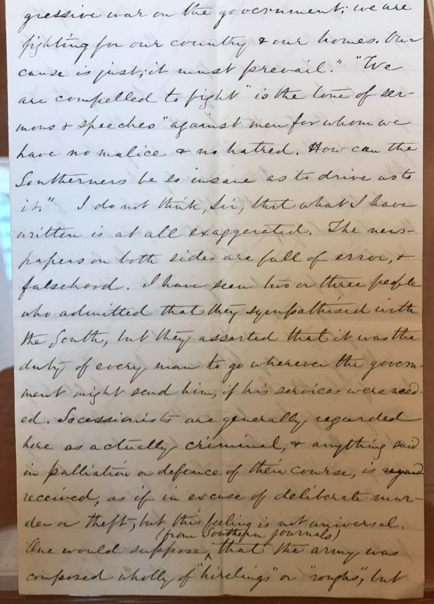 gressive war on the government; we are
fighting for our country & our homes. Our
cause is just; it must prevail." "We
are compelled to fight" is the tone of ser-
mons & speeches "against men for whom we
have no malice & no hatred. How can the
Southerners be so insane as to drive us to
it." I do not think, Sir, that what I have
written is at all exaggerated. The news-
papers on both sides are full of error, &
falsehood. I have seen two or three people
who admitted that they sympathised with
the South, but they asserted that it was the
duty of every man to go wherever the govern-
ment might send him, if his services were need-
ed. Secessionists are generally regarded
here as actually criminal, & anything said
in palliation or defence of their course, is regard
received, as if in excuse of deliberate mur-
der or theft; but this feeling is not universal.
(from Southern journals)
One would suppose, that the army was
composed wholly of "hirelings" or "roughs", but